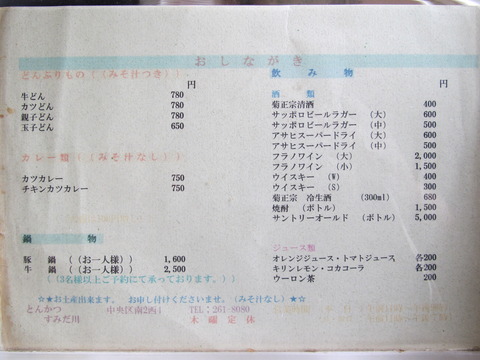 おしながき
どんぶりもの((みそ汁つき))
円
牛どん 780
カツどん 780
親子どん 780
玉子どん 650
カレー類((みそ汁なし))
円
カツカレー 750
チキンカツカレー 750
鍋 物
豚 鍋 ((お一人様)) 1,600
牛 鍋 ((お一人様)) 2,500
((3名様以上ご予約にて承っております。))
飲み物
円
酒 類
菊正宗清酒 400
サッポロビールラガー (大) 600
サッポロビールラガー (中) 500
アサヒスーパードライ (大) 600
アサヒスーパードライ (中) 500
フラノワイン (大) 2,000
フラノワイン (小) 1,500
ウイスキー (W) 400
ウイスキー (S) 300
菊正宗 冷生酒 (300ml) 680
焼酎 (ボトル) 1,500
サントリーオールド (ボトル) 5,000
ジュース類
オレンジジュース・トマトジュース 各200
キリンレモン・コカコーラ 各200
ウーロン茶 200
☆★お土産出来ます。 お申し付けくださいませ。(みそ汁なし)★☆
とんかつ 中央区南2西4 TEL:261-8080
すみだ川 木曜定休